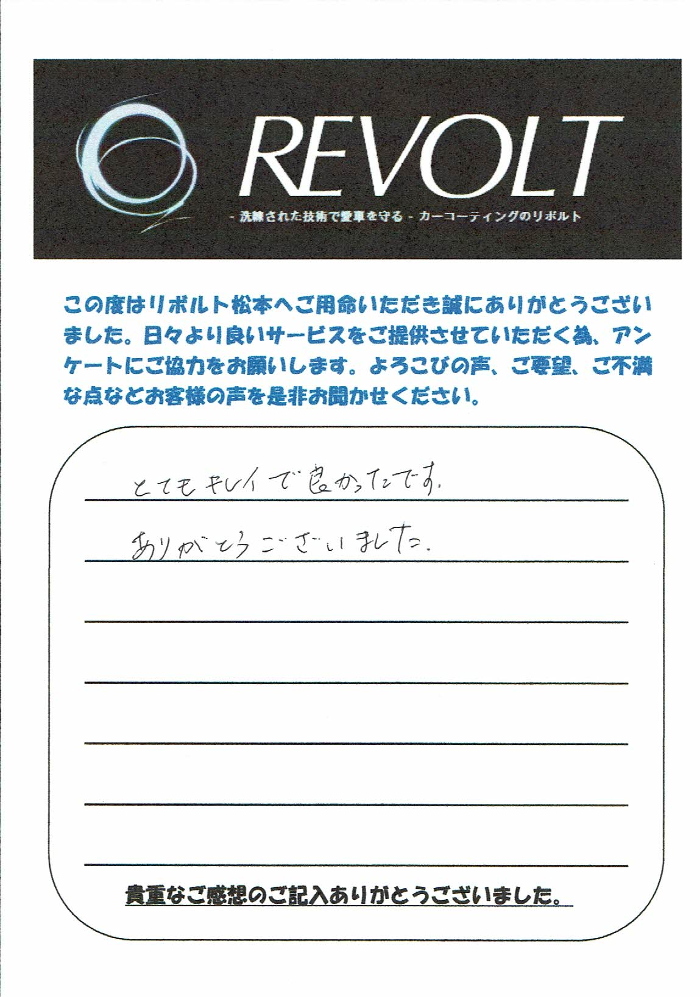 REVOLT
- 洗練された技術で愛車を守る - カーコーティングのリボルト
この度はリボルト松本へご用命いただき誠にありがとうござい
ました。日々より良いサービスをご提供させていただく為、アン
ケートにご協力をお願いします。よろこびの声、ご要望、ご不満
な点などお客様の声を是非お聞かせください。
とてもキレイで良かったです.
ありがとうございました.
貴重なご感想のご記入ありがとうございました。